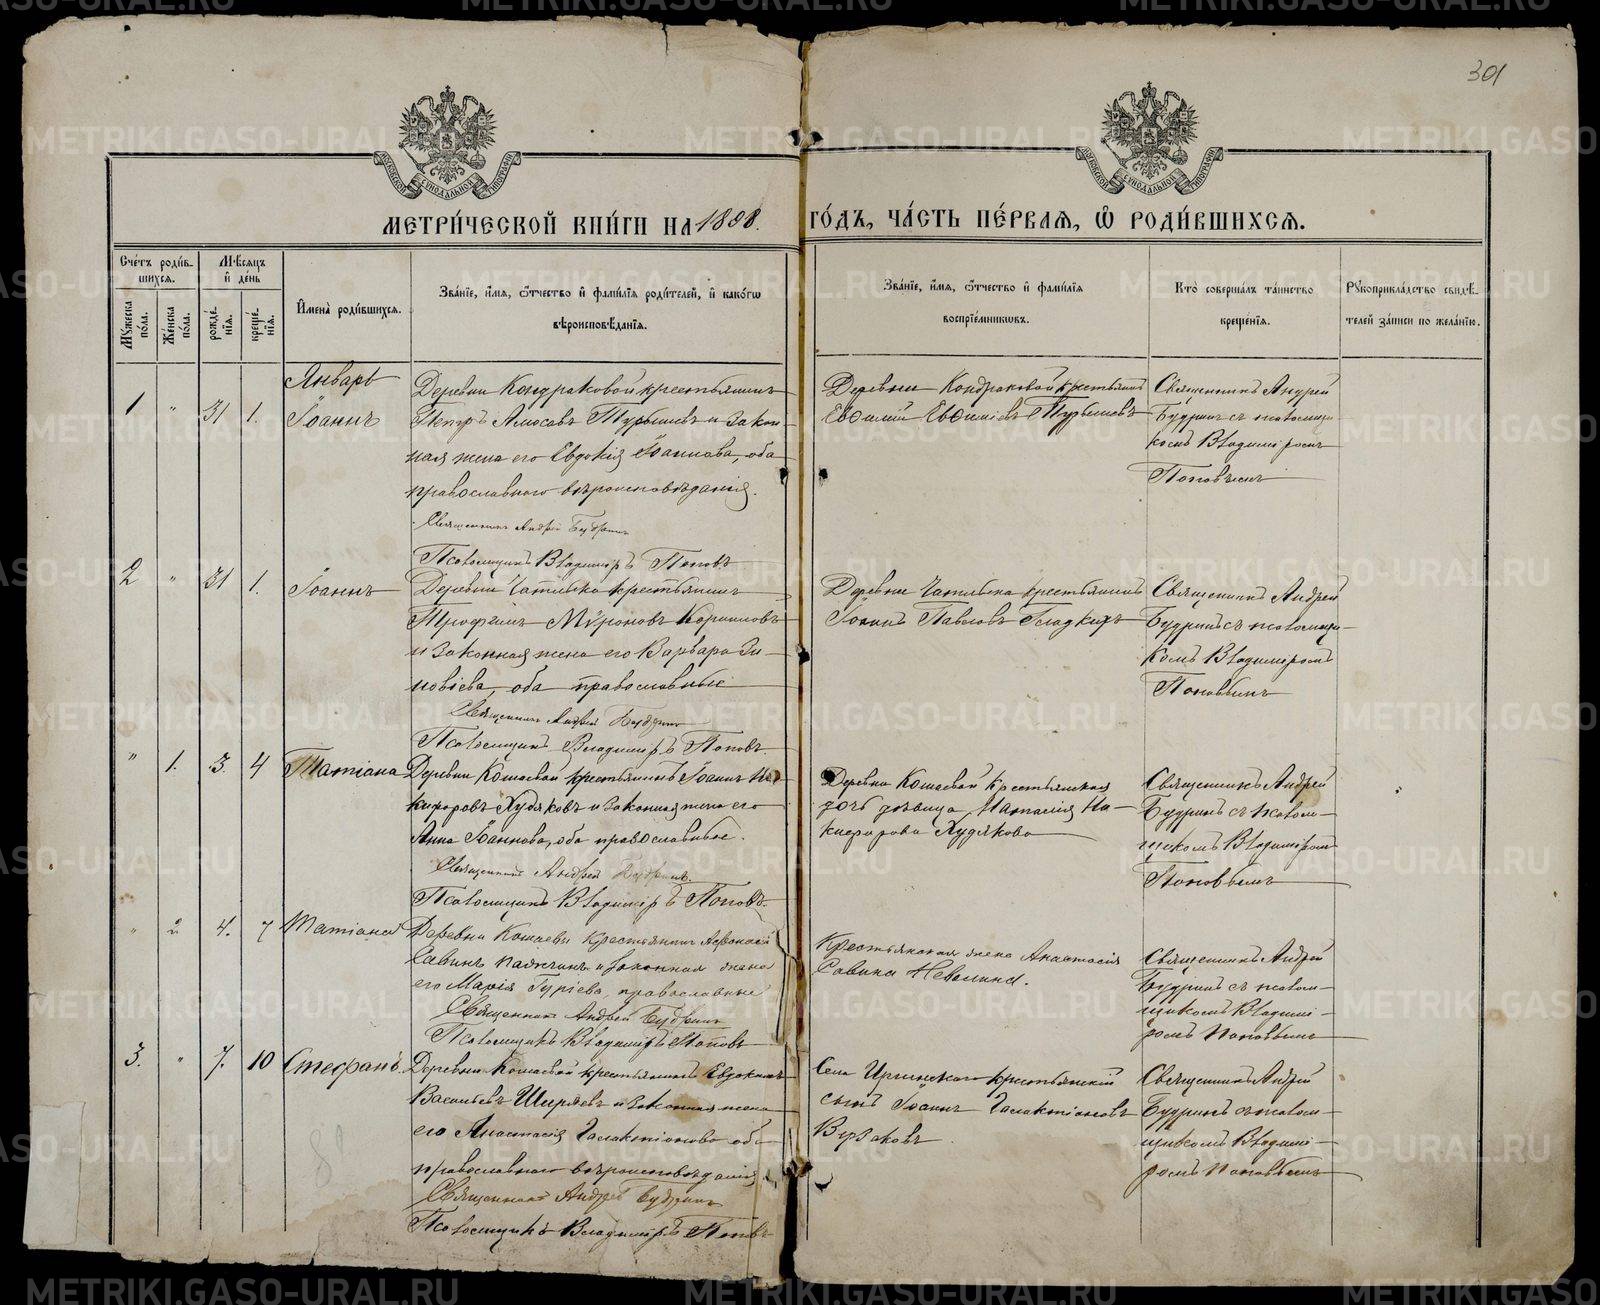 301
МОСКОВСКОЙ СѴНОДАЛЬНОЙ ТИПОГРАФІИ
МОСКОВСКОЙ СѴНОДАЛЬНОЙ ТИПОГРАФІИ
МЕТРИ́ЧЕСКОЙ КНИ́ГИ НА 1898. ГО́ДЪ, ЧА́СТЬ ПЕ́РВАЯ, Ѽ РОДИ́ВШИХСЯ.
Сче́тъ роди́в-
шихся.
Мѣсяцъ
и҆ де́нь
Мꙋжеска по́ла.
Же́нска по́ла.
рожде́нїя.
креще́нїя.
И҆мена̀ роди́вшихся.
Зва́нїе, и҆́мя, ѻ҆́тчество и҆ фами́лїя роди́телей, и҆ како́гѡ
вѣроисповѣ́данїя.
Зва́нїе, и҆́мя, ѻ҆́тчество и҆ фами́лїя
воспрїе́мникѡвъ.
Кто̀ соверша́лъ та́инство
креще́нїя.
Рꙋкоприкла́дство свидѣ́-
телей за́писи по жела́нїю.
Январь
1 " 31 1. Іоаннъ
Деревни Кондраковой крестьянинъ
Петръ Амосовъ Турбиновъ и закон-
ная жена его Евдокія Іоаннова, оба
православнаго вѣроисповѣданія.
Священникъ Андрей Будринъ
Псаломщикъ Владиміръ Поповъ
Деревни Кондраковой крестьянинъ
Евѳимій Евѳиміевъ
Священникъ Андрей
Будринъ съ псаломщи-
комъ Владиміромъ
Поповымъ
2 " 31 1. Іоаннъ
Деревни крестьянинъ
Трофимъ Мѵроновъ
и законная жена его Варвара Зи-
новіева, оба православные
Священникъ Андрей Будринъ
Псаломщикъ Владиміръ Поповъ.
Деревни крестьянинъ
Іоаннъ Павловъ Гладкихъ
Священникъ Андрей
Будринъ съ псаломщи-
комъ Владиміромъ
Поповымъ
" 1. 3. 4 Татіана
Деревни Кошаевой крестьянинъ Іоаннъ Ни-
кифоровъ Худяковъ и законная жена его
Анна Іоаннова, оба православные.
Священникъ Андрей Будринъ.
Псаломщикъ Владиміръ Поповъ.
Деревни Кошаевой крестьянская
дочь дѣвица Наталія Ни-
кифорова Худякова
Священникъ Андрей
Будринъ съ псалом-
щикомъ Владиміромъ
Поповымъ
" 2 4. 7 Татіана
Деревни Кошаевы крестьянинъ Аѳанасій
Савинъ и законная жена
его Марія Гуріева, православные
Священникъ Андрей Будринъ
Псаломщикъ Владиміръ Поповъ
Крестьянская жена Анастасія
Савина Неволина.
Священникъ Андрей
Будринъ съ псалом-
щикомъ Владимі-
ромъ Поповымъ
3. " 7. 10 Стефанъ.
Деревни Кошаевой крестьянинъ Евдокимъ
Васильевъ Ширяевъ и законная жена
его Анастасія Галактіонова оба
православнаго вѣроисповѣданія
Священникъ Андрей Будринъ
Псаломщикъ Владиміръ Поповъ
Села Иргинскаго крестьянскій
сынъ Іоаннъ Галактіоновъ
Бузаковъ
Священникъ Андрей
Будринъ съ псалом-
щикомъ Владимі-
ромъ Поповымъ
METRIKI.GASO-URAL.RU